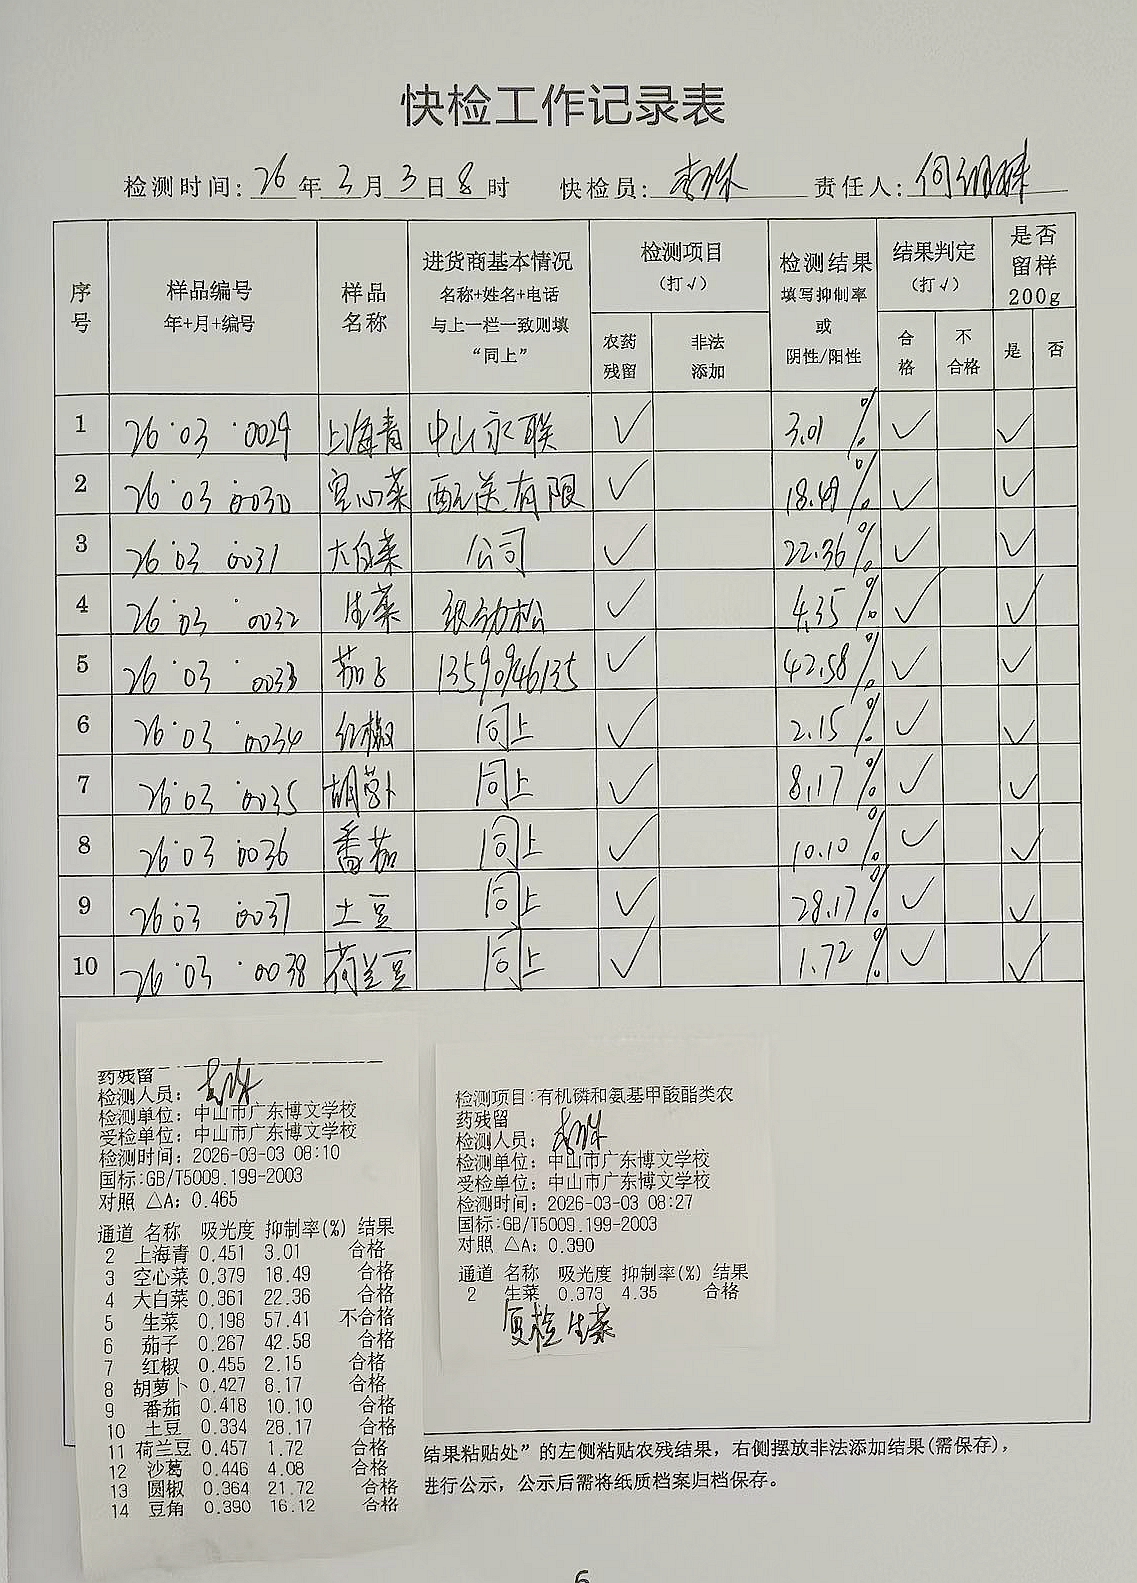 快检工作记录表
检测时间: 26 年 3 月 3 日 8 时 快检员: 责任人: 何
序号 样品编号 年+月+编号 样品名称 进货商基本情况 名称+姓名+电话 与上一栏一致则填 “同上” 检测项目 (打√) 农药残留 非法添加 检测结果 填写抑制率 或 阴性/阳性 结果判定 (打√) 合格 不合格 是否留样 200g 是 否
1 26·03·0029 上海青 中山永联 ✓ 3.01% ✓ ✓
2 26·03·0030 空心菜 配送有限 ✓ 18.49% ✓ ✓
3 26·03·0031 大白菜 公司 ✓ 22.36% ✓ ✓
4 26·03·0032 生菜 劲松 ✓ 4.35% ✓ ✓
5 26·03·0033 茄子 13590946135 ✓ 42.58% ✓ ✓
6 26·03·0034 红椒 同上 ✓ 2.15% ✓ ✓
7 26·03·0035 胡萝卜 同上 ✓ 8.17% ✓ ✓
8 26·03·0036 番茄 同上 ✓ 10.10% ✓ ✓
9 26·03·0037 土豆 同上 ✓ 28.17% ✓ ✓
10 26·03·0038 荷兰豆 同上 ✓ 1.72% ✓ ✓
药残留
检测人员:
检测单位: 中山市广东博文学校
受检单位: 中山市广东博文学校
检测时间: 2026-03-03 08:10
国标:GB/T5009.199-2003
对照 △A: 0.465
通道 名称 吸光度 抑制率(%) 结果
2 上海青 0.451 3.01 合格
3 空心菜 0.379 18.49 合格
4 大白菜 0.361 22.36 合格
5 生菜 0.198 57.41 不合格
6 茄子 0.267 42.58 合格
7 红椒 0.455 2.15 合格
8 胡萝卜 0.427 8.17 合格
9 番茄 0.418 10.10 合格
10 土豆 0.334 28.17 合格
11 荷兰豆 0.457 1.72 合格
12 沙葛 0.446 4.08 合格
13 圆椒 0.364 21.72 合格
14 豆角 0.390 16.12 合格
检测项目:有机磷和氨基甲酸酯类农
药残留
检测人员:
检测单位: 中山市广东博文学校
受检单位: 中山市广东博文学校
检测时间: 2026-03-03 08:27
国标:GB/T5009.199-2003
对照 △A: 0.390
通道 名称 吸光度 抑制率(%) 结果
2 生菜 0.373 4.35 合格
复检生菜
结果粘贴处”的左侧粘贴农残结果，右侧摆放非法添加结果(需保存)，
进行公示，公示后需将纸质档案归档保存。
6